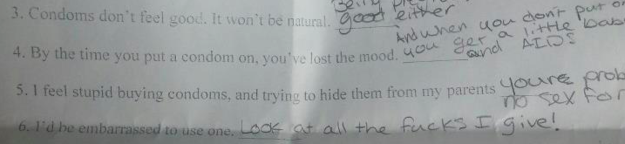 3. Condoms don't feel good. It won't be natural. good either
And when you don't put
4. By the time you put a condom on, you've lost the mood. you get a little
and AIDS
5. I feel stupid buying condoms, and trying to hide them from my parents youre
no sex for
6. I'd be embarrassed to use one. Look at all the fucks I give!